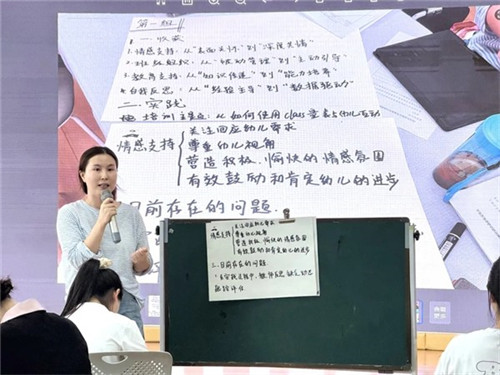 第一组
一、收获
1. 情感支持：从"表面关怀"到"深度共情"
2. 班级组织：从"被动管理"到"主动引导"
3. 教育支持：从"知识传递"到"能力培养"
4. 自我反思：从"经验主导"到"数据驱动"
二、实践
培训主要点：从如何使用class
情感支持
关注回应幼儿需求
尊重幼儿视角
营造积极、愉快的情感氛围
有效鼓励和肯定幼儿的进步
目前存在的问题.
二
情感支持
关注回应幼儿需求
尊重幼儿视角
营造积极、愉快的情感氛围
有效鼓励和肯定幼儿的进步
三、目前存在的问题